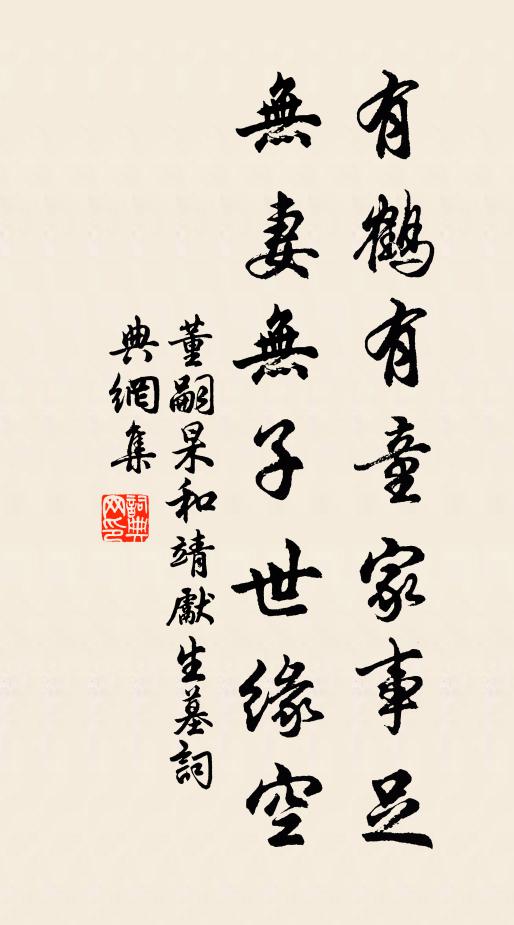 有鶴有童家事足
無妻無子世緣空
董嗣杲和靖獻生墓詞
典網集
詞典網印